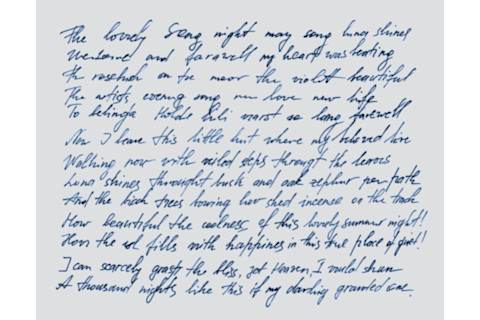 The lovely Song night may song Luna shines
Welcome and farewell my heart was beating
The rosebud on the moor the violet beautiful
The artists evening song new love new life
To belinda Holde Lili warst so long farewell
Now I leave this little hut where my beloved live
Walking now with veiled steps through the leaves
Luna shines through bush and oak zephyr per path
And the birch trees bowing low shed incense on the track
How beautiful the coolness of this lovely summer night!
How the soul fills with happiness in this true place of quiet!
I can scarcely grasp the bliss, yet Heaven, I would shun
A thousand nights like this if my darling granted one.